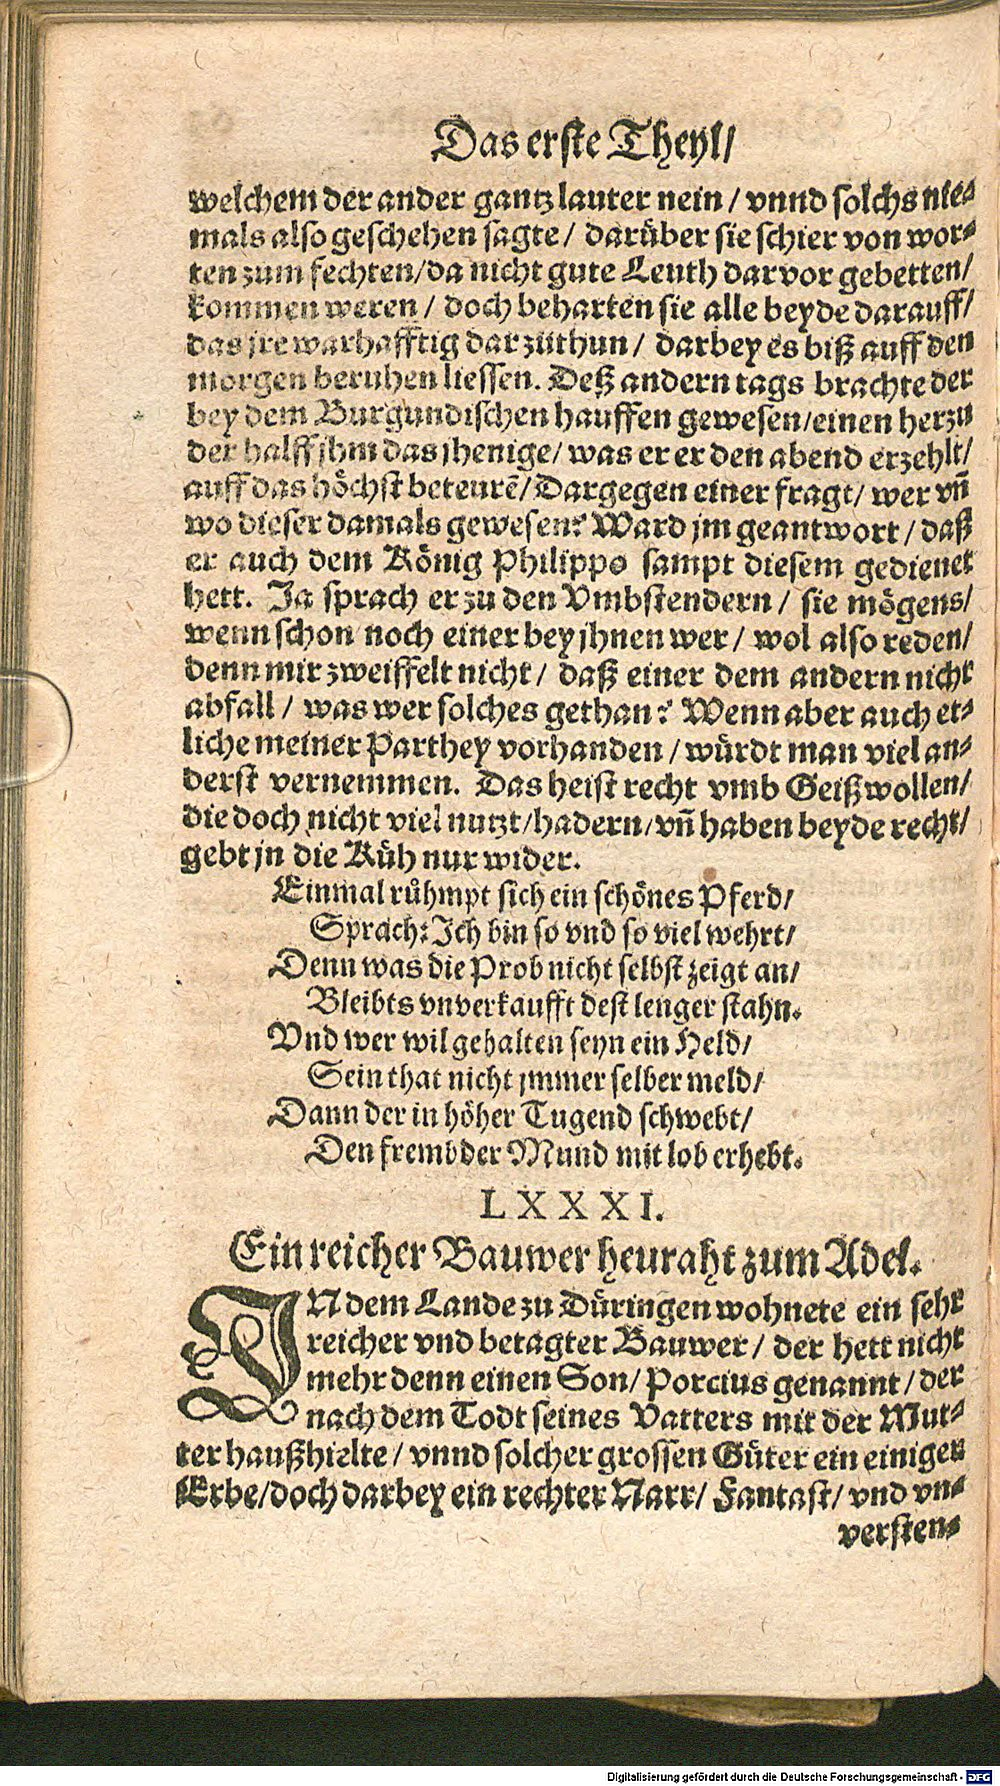 Das erste Theyl/
welchem der ander gantz lauter nein / vnnd solchs nie-
mals also geschehen sagte / darüber sie schier von wor-
ten zum fechten/da nicht gute Leuth darvor gebetten/
kommen weren / doch beharten sie alle beyde darauff/
das jre warhafftig darzüthun / darbey es biß auff den
morgen beruhen liessen. Deß andern tags brachte der
bey dem Burgundischen hauffen gewesen/einen herzu
der halff jhm das jhenige/ was er er den abend erzehlt/
auff das höchst beteurẽ/ Dargegen einer fragt/ wer vñ
wo dieser damals gewesen? Ward jm geantwort / daß
er auch dem König Philippo sampt diesem gedienet
hett. Ja sprach er zu den Vmbstendern / sie mögens/
wenn schon noch einer bey jhnen wer / wol also reden/
denn mir zweiffelt nicht / daß einer dem andern nicht
abfall / was wer solches gethan? Wenn aber auch et-
liche meiner Parthey vorhanden / würdt man viel an-
derst vernemmen. Das heist recht vmb Geißwollen/
die doch nicht viel nutzt/hadern/vñ haben beyde recht/
gebt jn die Küh nur wider.
Einmal růhmpt sich ein schönes Pferd/
Sprach: Ich bin so vnd so viel wehrt/
Denn was die Prob nicht selbst zeigt an/
Bleibts vnverkaufft dest lenger stahn.
Vnd wer wil gehalten seyn ein Held/
Sein that nicht jmmer selber meld/
Dann der in höher Tugend schwebt/
Den frembder Mund mit lob erhebt.
LXXXI.
Ein reicher Bauwer heuraht zum Adel.
IN dem Lande zu Düringen wohnete ein sehr
reicher vnd betagter Bauwer / der hett nicht
mehr denn einen Son/ Porcius genannt / der
nach dem Todt seines Vatters mit der Mut-
ter haußhielte / vnnd solcher grossen Güter ein einiger
Erbe/doch darbey ein rechter Narr/ Fantast/ vnd vn-
versten-
Digitalisierung gefördert durch die Deutsche Forschungsgemeinschaft - DFG